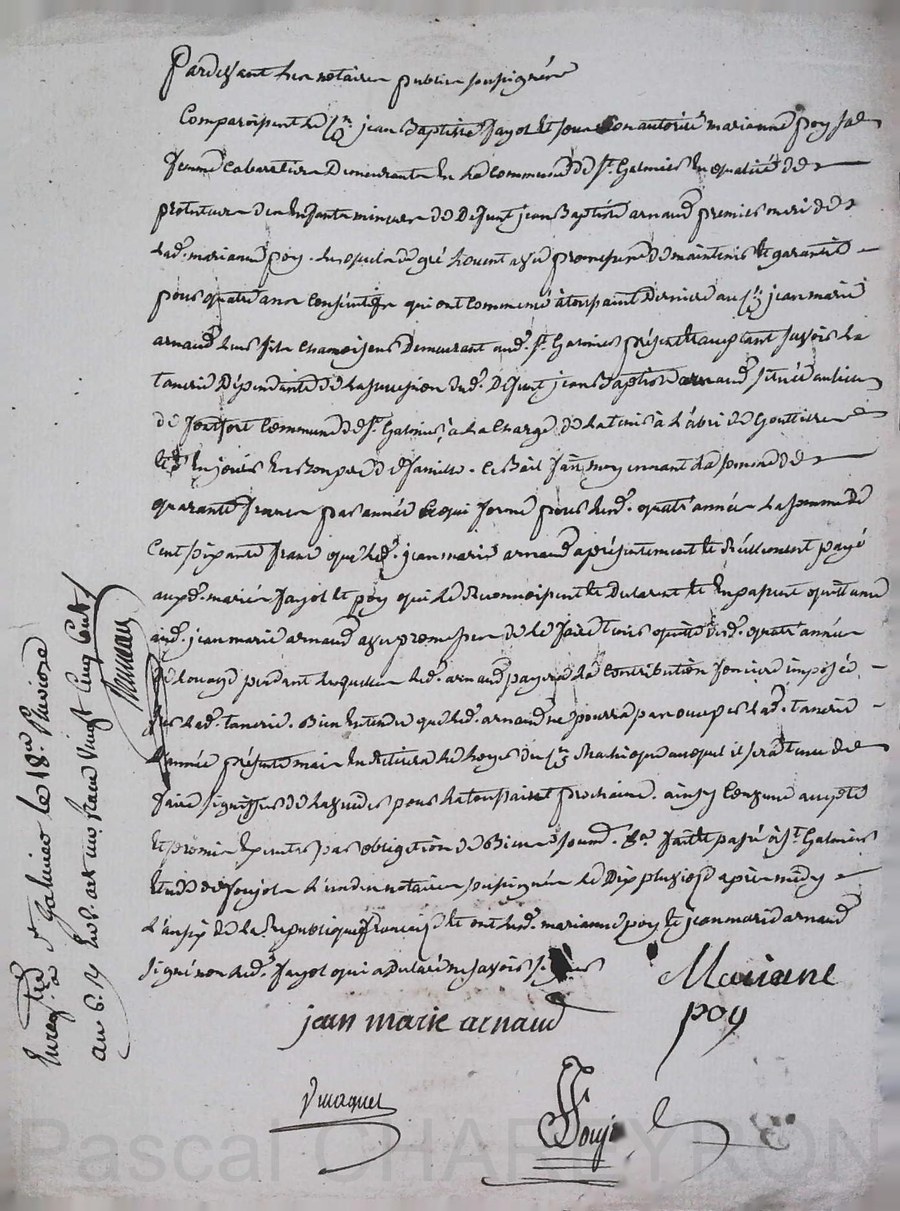 Pardevant les notaires publics soussignés
Comparoissent le Sr. jean Baptiste fayol et sous son autorité marianne poy sa
femme cabaretiers Demeurants en la commune de St. Galmier en qualité de
protuteurs des enfants mineurs de Defunt jean Baptiste arnaud premier mari de
lad. marianne poy. lesquels de gré louent avec promesse de maintenir et garantir
pour quatre années consécutives qui ont commencé à toussaint Dernier au Sr. jean marie
arnaud leur fils chamoiseur Demeurant aud. St. Galmier présent et acceptant savoir la
tanerie Dépendante de la succession dud. Defunt jean Baptiste arnaud située au lieu
de fontfort commune de St. Galmier, à la charge de la tenir à l'abri de Gouttieres
et d'en jouir en Bon pere de famille. ce Bail fait moyennant la somme de
quarante francs par année ce qui forme pour lesd. quatre années la somme de
Cent soixante francs que led. jean marie arnaud a présentement et réellement payé
auxd. mariés fayol et poy qui le Reconnoissent et Declarent et en passent quittance
aud. jean marie arnaud avec promesse de le faire tenir quitte desd. quatre années
de louage pendant lesquelles led. arnaud payera la contribution fonciere imposée
sur lad. tanerie. Bien entendu que led. arnaud ne pourra pas occuper lad. tanerie
l'année présente mais en retirera le loyer du Sr. auquel il sera tenu de
faire signifier de la vuider pour la toussaint prochaine. ainsy convenu accepté
et promis executer par obligation de Biens soumis. &a. fait et passé à St. Galmier
Etude de Soujol l'un des notaires soussignés le Dix pluviose après midy
l'an six de la Republique francaise et ont lesd. marianne poy et jean marie arnaud
signé non led. fayol qui a Declaré ne savoir signer
Mariane
poy
jean marie arnaud
Souj
Enregtré à St Galmier le 18 pluviose
an 6. Reçu un franc vingt cinq cent.